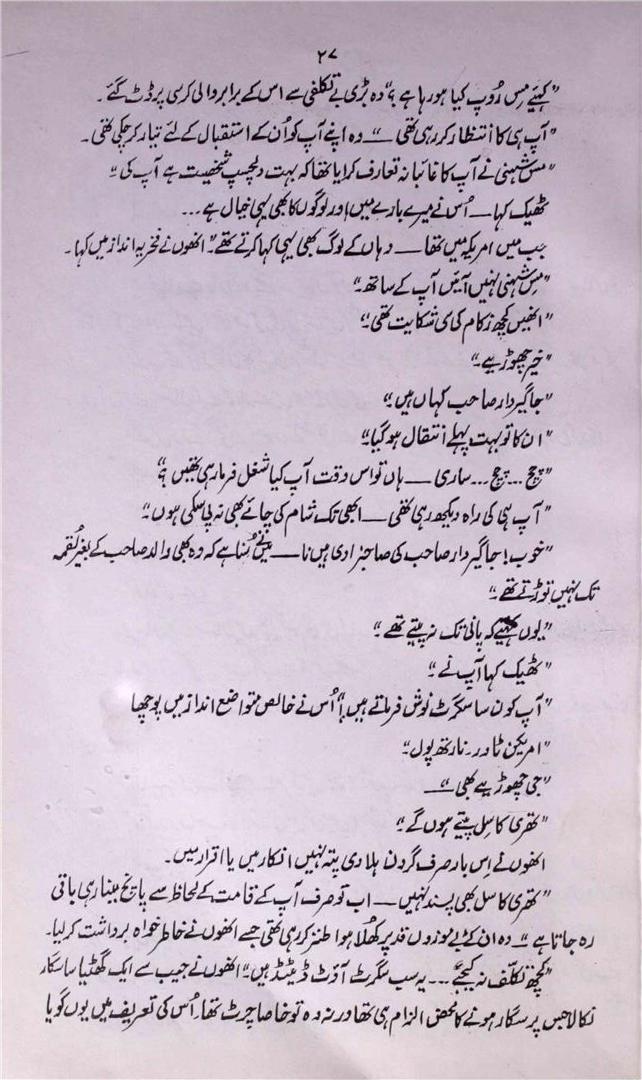 ۲۷
"کہیئے مِس رُوپ کیا ہو رہا ہے؟" وہ بڑی بے تکلفی سے اس کے برابر والی کرسی پر ڈٹ گئے۔
"آپ ہی کا اُنتظار کر رہی تھی" — وہ اپنے آپ کو اُن کے استقبال کے لئے تیار کر چکی تھی۔
"مس شہنی نے آپ کا غائبانہ تعارف کرایا تھا کہ بہت دلچسپ شخصیت ہے آپ کی"
ٹھیک کہا — اُس نے میرے بارے میں اور لوگوں کا بھی یہی خیال ہے...
جب میں امریکہ میں تھا — وہاں کے لوگ بھی یہی کہا کرتے تھے۔" انھوں نے فخریہ انداز میں کہا۔
"مِس شہنی نہیں آئیں آپ کے ساتھ۔"
"انھیں کچھ زکام کی ی شکایت تھی۔"
"خیر چھوڑیے۔"
"جاگیردار صاحب کہاں ہیں۔"
"ان کا تو بہت پہلے اُنتقال ہو گیا۔"
"چچ... چچ... ساری — ہاں تو اس وقت آپ کیا شغل فرما رہی تھیں؟"
"آپ ہی کی راہ دیکھ رہی تھی — ابھی تک شام کی چائے بھی نہ پی سکی ہوں۔"
"خوب! جاگیردار صاحب کی صاحبزادی ہیں نا — میں نے سُنا ہے کہ وہ بھی والد صاحب کے بغیر لُقمہ
تک نہیں توڑتے تھے۔"
"یوں کہیئے کہ پانی تک نہ پیتے تھے۔"
"ٹھیک کہا آپ نے۔"
"آپ کون سا سگرٹ نوش فرماتے ہیں!" اُس نے خالص متواضع انداز میں پوچھا
"امریکن ٹاور۔ نارتھ پول۔"
"جی چھوڑیے بھی" —
"تھری کاسل پیتے ہوں گے۔"
انھوں نے اِس بار صرف گردن ہلا دی پتہ نہیں انکار میں یا اقرار میں۔
"تھری کاسل بھی پسند نہیں — اب تو صرف آپ کے قامت کے لحاظ سے پانچ مینار ہی باقی
رہ جاتا ہے" — وہ ان کے بے موزوں قد پر کھُلا ہوا طنز کر رہی تھی جسے انھوں نے خاطر خواہ برداشت کر لیا۔
"کچھ تکلّف نہ کیجئے... یہ سب سگرٹ آؤٹ ڈیٹیڈ ہیں۔" انھوں نے جیب سے ایک گھٹیا سا سگار
نکالا جس پر سگار ہونے کا محض الزام ہی تھا ورنہ وہ تو خاصا چرٹ تھا۔ اُس کی تعریف میں یوں گویا